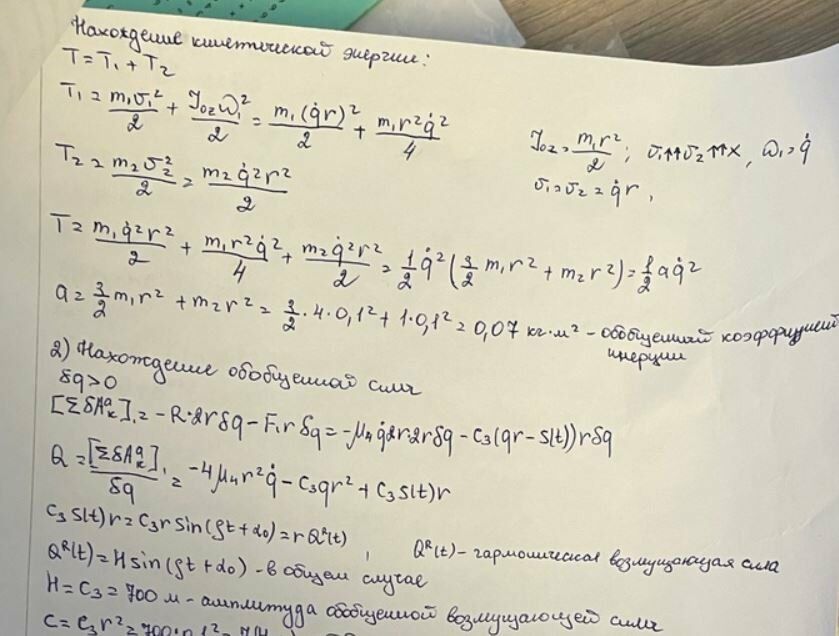 Нахождение кинетической энергии:
T = T₁ + T₂
T₁ = m₁σ₁²/2 + J₀z ω₁²/2 = m₁(q̇r)²/2 + m₁r²q̇²/4
J₀z = m₁r²/2 ; σ₁↑↑σ₂↑↑x, ω₁ = q̇
T₂ = m₂σ₂²/2 = m₂q̇²r²/2
σ₁ = σ₂ = q̇r,
T = m₁q̇²r²/2 + m₁r²q̇²/4 + m₂q̇²r²/2 = 1/2 q̇² (3/2 m₁r² + m₂r²) = 1/2 aq̇²
a = 3/2 m₁r² + m₂r² = 3/2·4·0,1² + 1·0,1² = 0,07 кг·м² – обобщенный коэффициент
инерции
2) Нахождение обобщенной силы
δq>0
[ΣδAᵃₖ]₁ = -R·2rδq - F₁rδq = -μ₄q̇2r·2rδq - c₃(qr - s(t))rδq
Q = [ΣδAᵃₖ]₁/δq = -4μ₄r²q̇ - c₃qr² + c₃s(t)r
c₃s(t)r = c₃r sin(ρt+α₀) = rQᴿ(t) , Qᴿ(t) – гармоническая возмущающая сила
Qᴿ(t) = H sin(ρt+α₀) - в общем случае
H = c₃ = 700 м - амплитуда обобщенной возмущающей силы
c = c₃r² = 700·0,1² =